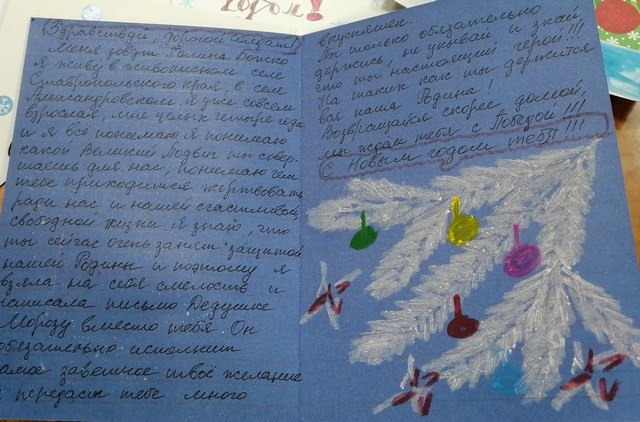 годом!
Здравствуй, дорогой Солдат!
Меня зовут Полина Божко
Я живу в живописном селе
Ставропольского края, в селе
Александровском. Я уже совсем
взрослая, мне целых четыре года
и я всё понимаю. Я понимаю
какой Великий Подвиг ты совер-
шаешь для нас, понимаю чем
тебе приходится жертвовать
ради нас и нашей счастливой,
свободной жизни. Я знаю, что
ты сейчас очень занят защитой
нашей Родины и поэтому я
взяла на себя смелость и
написала письмо Дедушке
Морозу вместо тебя. Он
обязательно исполнит
самое заветное твоё желание
и передаст тебе много
вкусняшек.
Ты только обязательно
держись, не унывай и знай,
что ты настоящий герой!!!
На таких как ты держится
вся наша Родина!
Возвращайся скорее домой,
мы ждём тебя с Победой!!!
С Новым годом тебя!!!